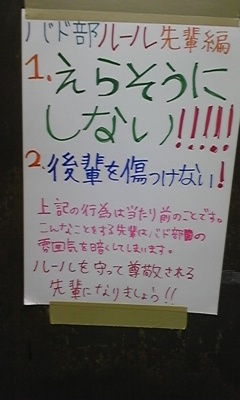 バド部ルール先輩編
1.えらそうに
しない!!!!!
2.後輩を傷つけない!
上記の行為は当たり前のことです。
こんなことをする先輩はバド部の
雰囲気を暗くしてしまいます。
ルールを守って尊敬される
先輩になりましょう!!